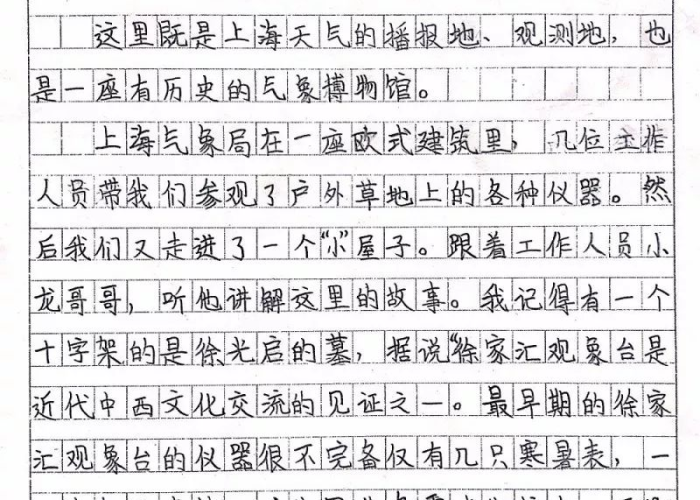 这里既是上海天气的播报地、观测地，也
是一座有历史的气象博物馆。
上海气象局在一座欧式建筑里，几位工作
人员带我们参观了户外草地上的各种仪器。然
后我们又走进了一个“小”屋子。跟着工作人员小
龙哥哥，听他讲解这里的故事。我记得有一个
十字架的是徐光启的墓，据说“徐家汇观象台是
近代中西文化交流的见证之一。最早期的徐家
汇观象台的仪器很不完备仅有几只寒暑表，一